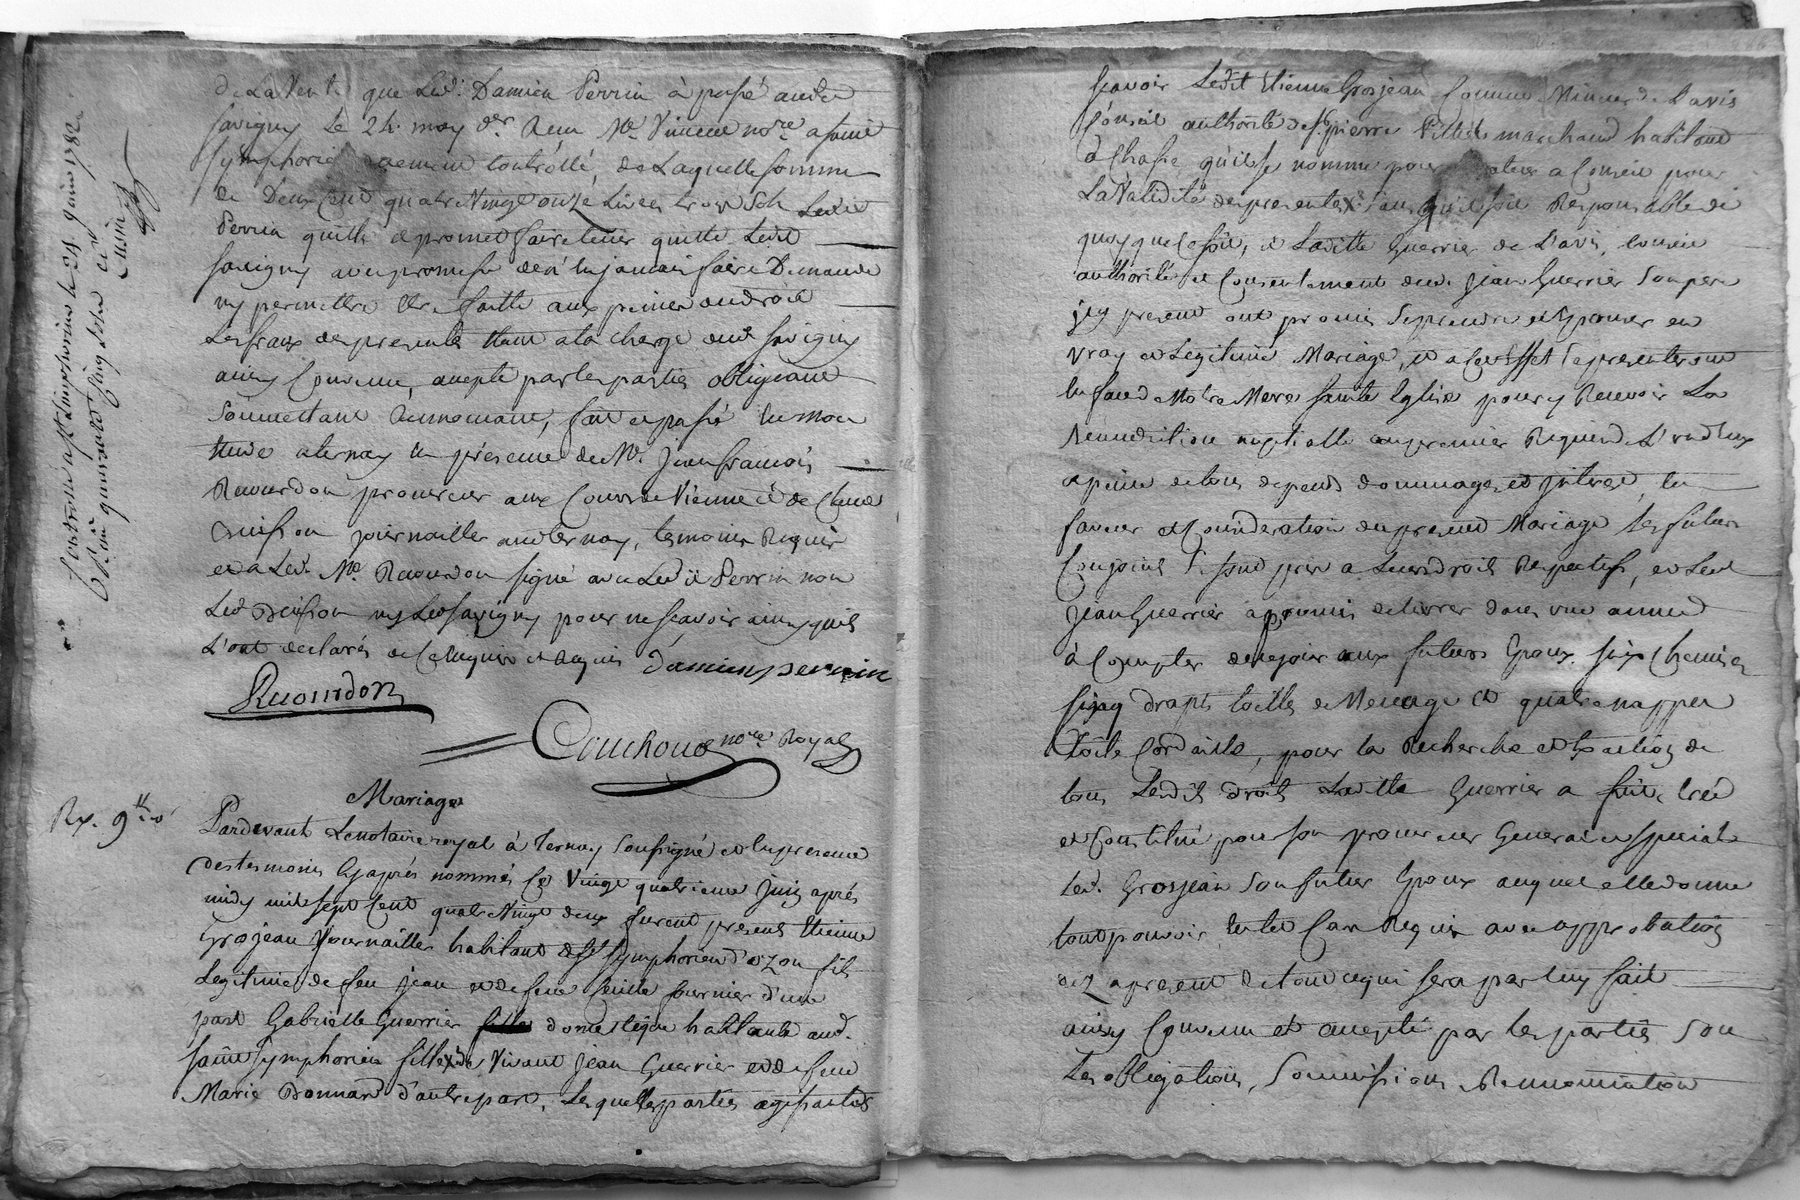 de La Vente que Led. Damien Perrin à passé aud.
Savigny le 24. may der. Reçu Me. Vincent nore. a saint
Symphorien dument Controllé, de Laquelle somme
de Deux Cent quatre Vingt onze Livres trois Sols Ledit
Perrin quitte et promet faire tenir quitte Ledit
Savigny avec promesse de n'en jamais faire Demande
ny permettre Etre faitte aux peines de droit
Les fraix des presentes Etant a la charge dud. Savigny
ainsy Convenu, accepté par les parties obligeant
Soumettant Renoncant, fait et passé en mon
Etude a ternay En présence de Me. Jean francois
Revourdon procureur aux Cours de Vienne et de Claude
journaillier aud. ternay, temoins Requis
et a Led. Me. Revourdon signé avec Ledit Perrin non
Led. ny Led. Savigny pour ne sçavoir ainsy quils
L'ont declarés de Ce Enquis et Requis Damien perrin
Revourdon
Couchoud nore. Royal
Mariage
Rx. 9tt
Pardevant Le notaire royal à Ternay Soussigné et En presence
Des temoins Cy après nommés Ce Vingt quatrieme Juin après
midy mil sept Cent quatre Vingt deux furent présents Etienne
Grosjean Journaillier habitant de St. Symphorien d'ozon fils
Legitime de feu Jean et de feue fournier d'une
part Gabrielle Guerrier domestique habitante aud.
saint Symphorien fille de Vivant Jean Guerrier et de feue
Marie Bonnard d'autre part, Lesquelles parties agissantes
Contrôlé a St. Simphorien le 24 juin 1782
Reçu quarante cinq sols
sçavoir Ledit Etienne Grosjean Comme Mineur de L'avis
Conseil authorité de Sr. pierre marchand habitant
à Chasse qu'il se nomme pour Curateur a Conseil pour
La Validité des presentes sans qu'il soit Responsable de
quoy que ce soit, et Laditte Guerrier de L'avis, Conseil
authorité et Consentement dud. Jean Guerrier Son pere
icy present ont promis Se prendre et Epouser en
vray et Legitime Mariage, et a Cet Effet Se presenter en
En face de Notre Mere Sainte Eglise pour y Recevoir La
Benediction nuptialle au premier Requis de L'un d'eux
a peine de tous depends dommages et Intérets, En
faveur et Consideration du present Mariage Les futurs
Conjoints Se sont pris a Leurs droits Respectifs, et Led.
Jean Guerrier à promis de livrer dans une année
à Compter de ce jour aux futurs Epoux six Chemises
six draps toille de Menage et quatre nappes
toile Cordaille, pour la Recherche et Exaction de
tous Lesdits droits Laditte Guerrier a fait, Créé
et Constitué pour son procureur General et special
Led. Grosjean Son futur Epoux auquel elle donne
tout pouvoir En tel Cas Requis avec approbation
dez apresent de tout ce qui sera par luy fait
ainsy Convenu et accepté par les parties Sous
Les obligations, Soumissions, Renonciation